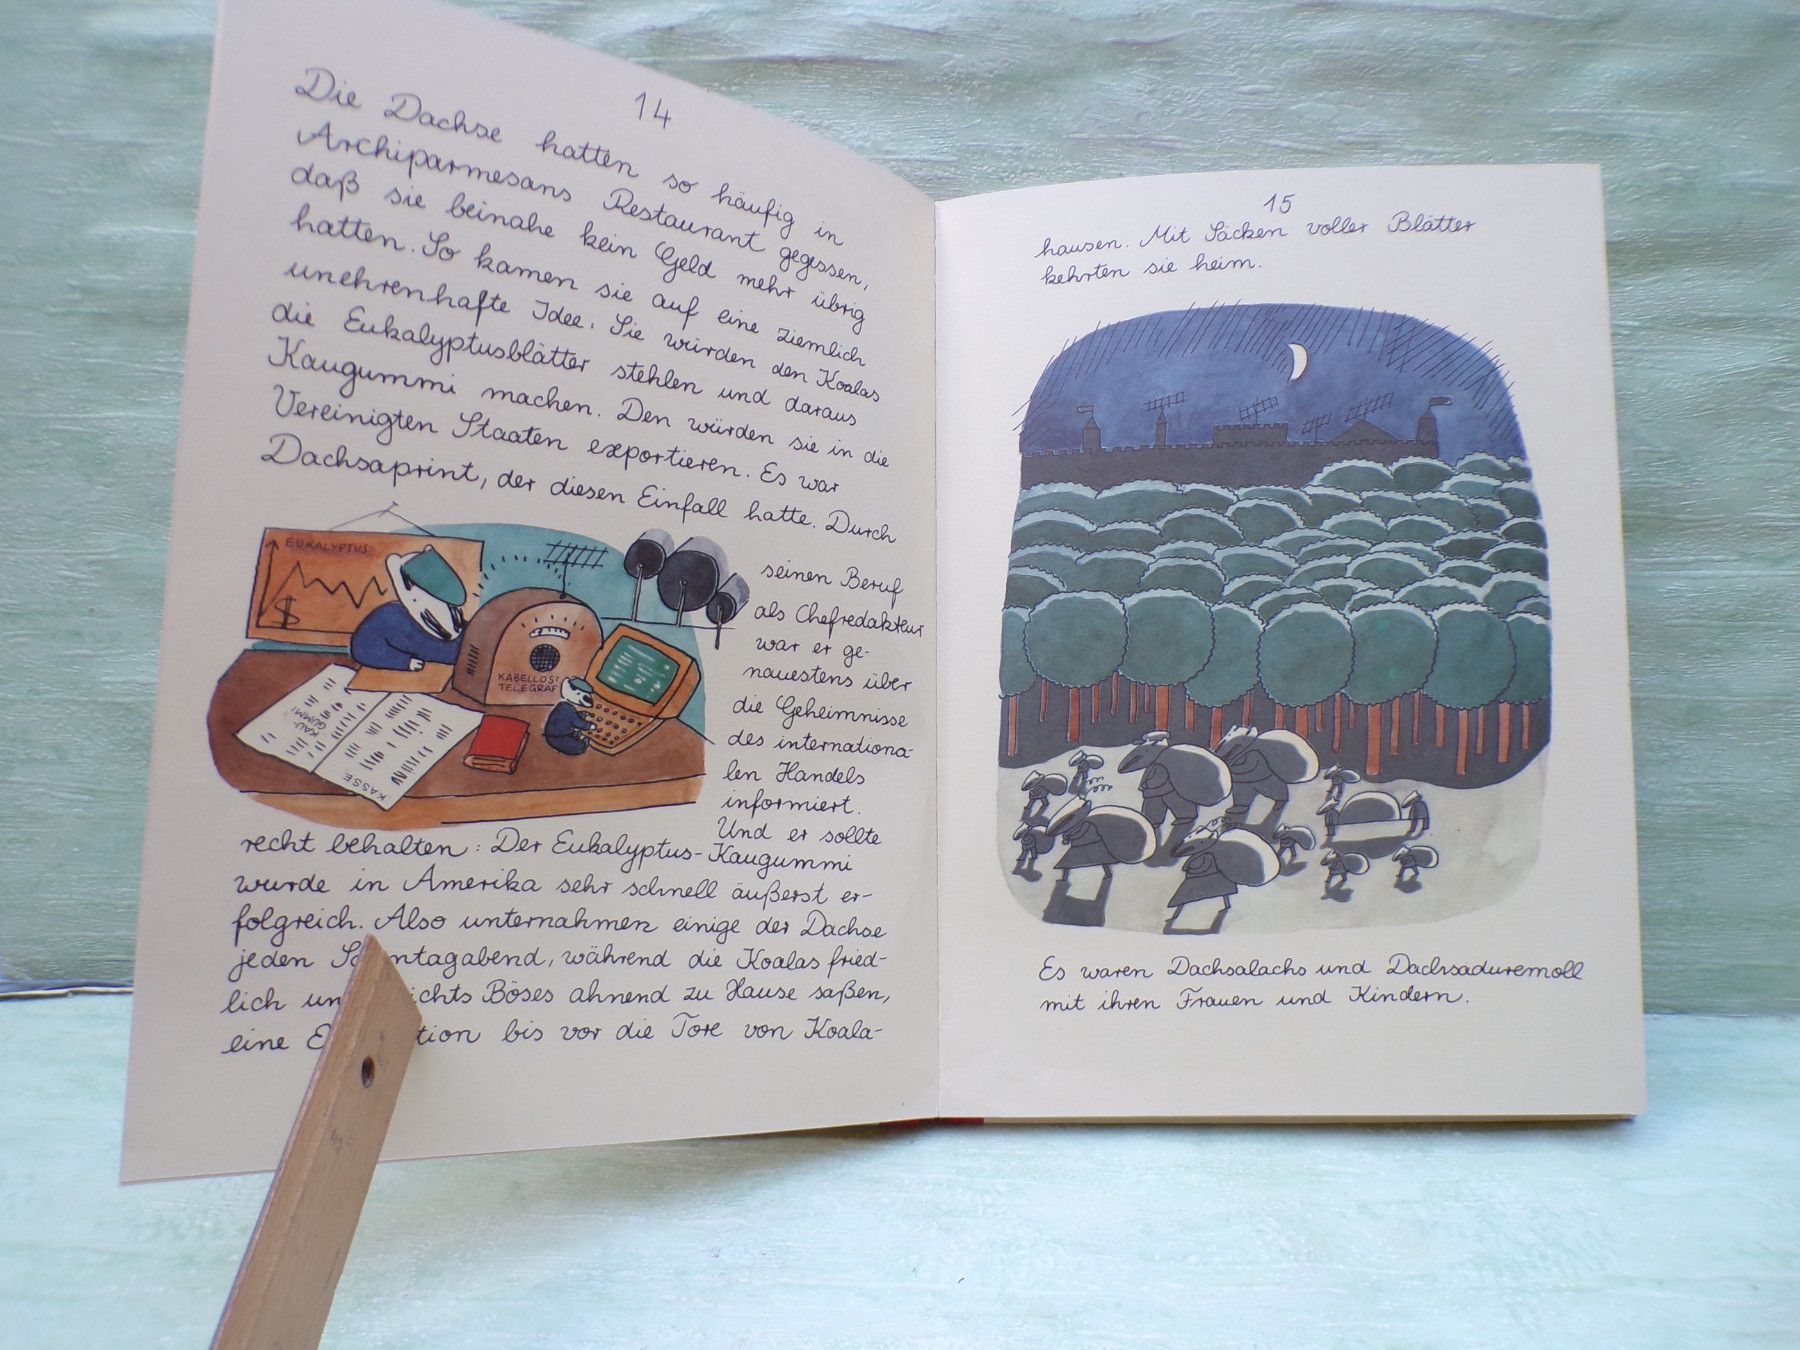 14
Die Dachse hatten so häufig in
Archiparmesans Restaurant gegessen,
daß sie beinahe kein Geld mehr übrig
hatten. So kamen sie auf eine ziemlich
unehrenhafte Idee: Sie würden den Koalas
die Eukalyptusblätter stehlen und daraus
Kaugummi machen. Den würden sie in die
Vereinigten Staaten exportieren. Es war
Dachsaprint, der diesen Einfall hatte. Durch
seinen Beruf
als Chefredakteur
war er ge-
nauestens über
die Geheimnisse
des internationa-
len Handels
informiert.
Und er sollte
recht behalten: Der Eukalyptus-Kaugummi
wurde in Amerika sehr schnell äußerst er-
folgreich. Also unternahmen einige der Dachse
jeden S ntagabend, während die Koalas fried-
lich un ichts Böses ahnend zu Hause saßen,
eine E tion bis vor die Tore von Koala-
EUKALYPTUS
$
KABELLOS!
TELEGRAF
KAU-
GUMMI
KASSE
15
hausen. Mit Säcken voller Blätter
kehrten sie heim.
Es waren Dachsalachs und Dachsaduremoll
mit ihren Frauen und Kindern.